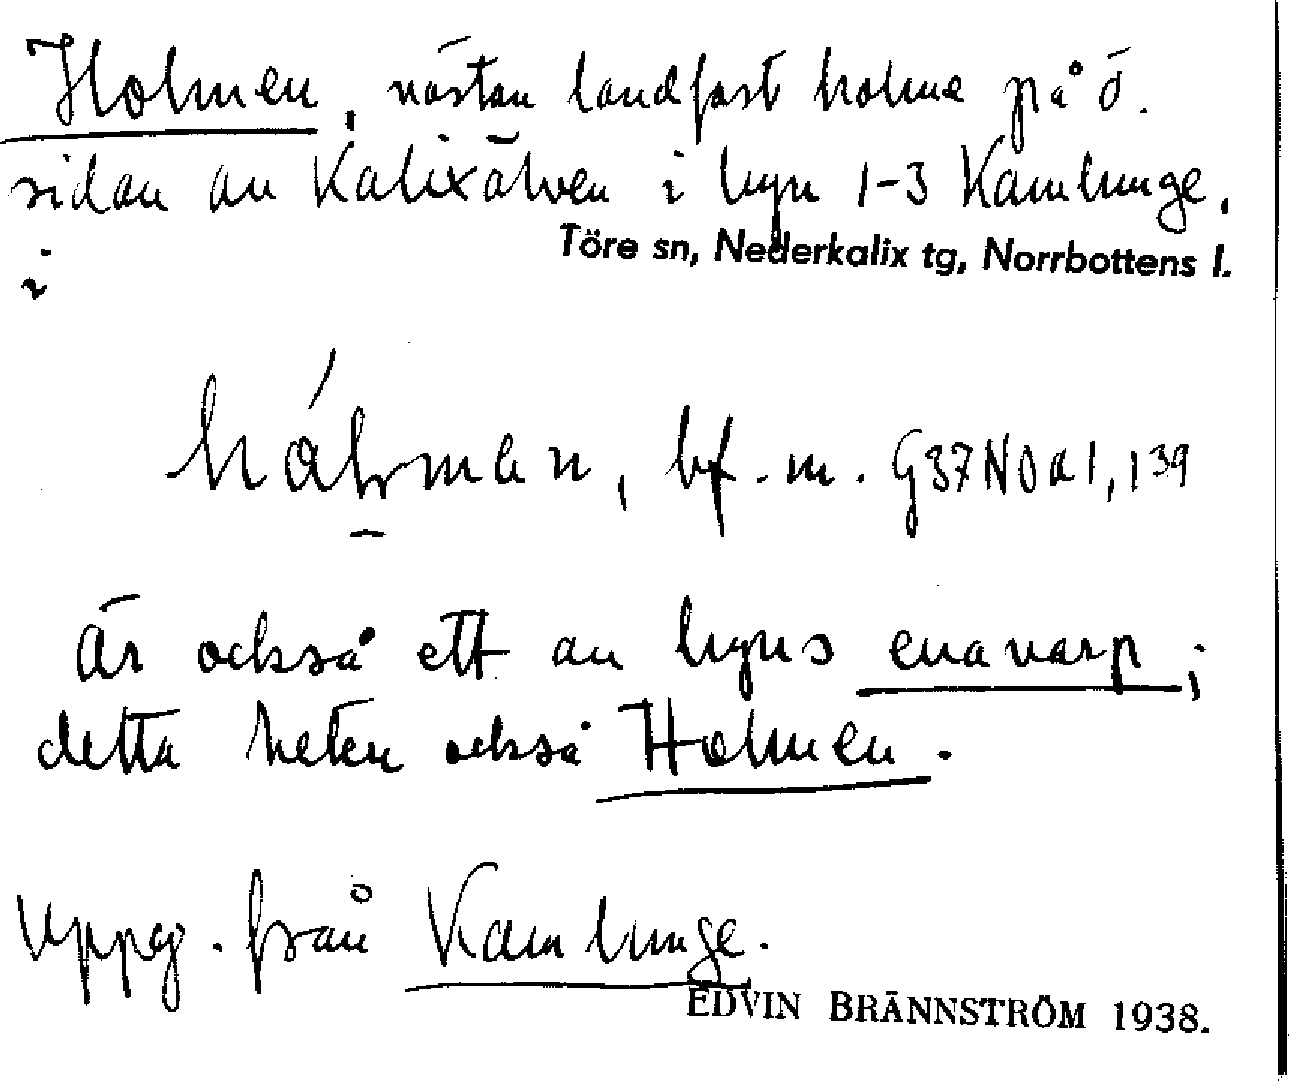 Holmen, nästan landfast holme på ö.
sidan av Kalixälven i byn 1-3 Kamlunge,
i
Töre sn, Nederkalix tg, Norrbottens l.
bf. m. G37N0a1, 139
Är också ett av byns
detta heter också Holmen.
Uppg. från Kamlunge.
EDVIN BRÄNNSTRÖM 1938.